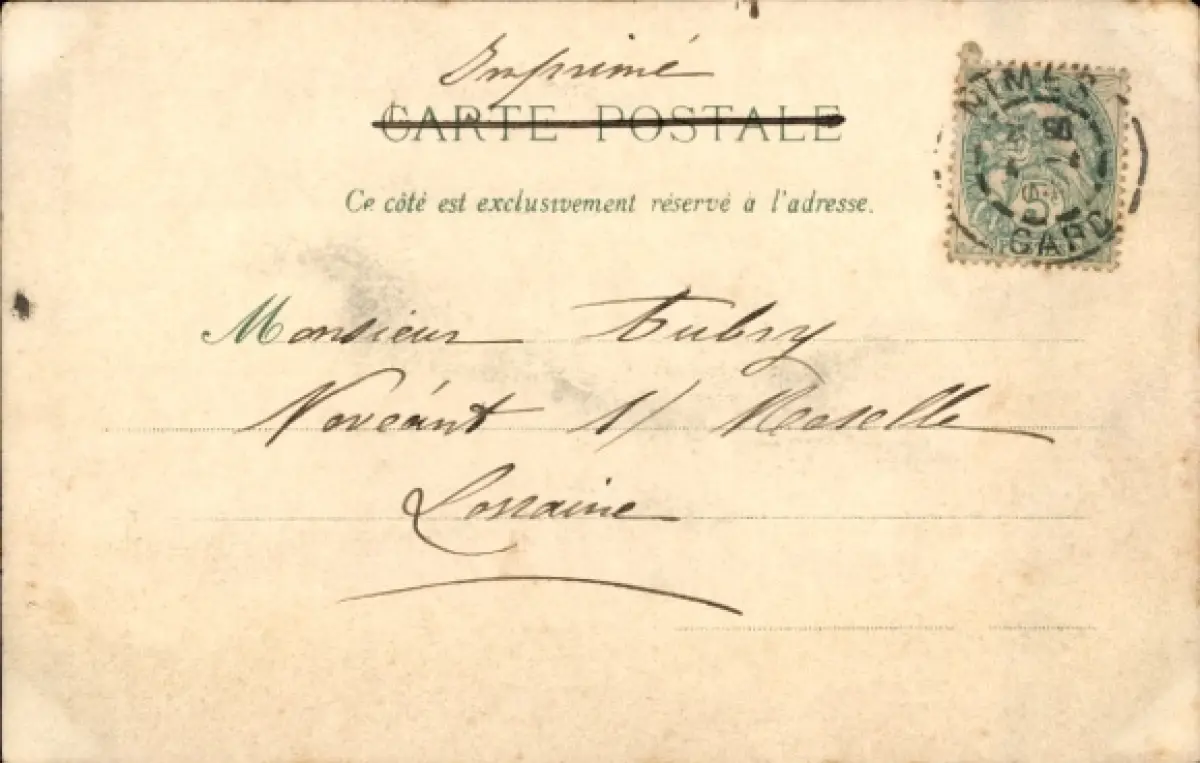 Imprimé
CARTE POSTALE
Ce côté est exclusivement réservé à l'adresse.
NIMES
GARD
5
Monsieur Aubry
Novéant s/ Moselle
Lorraine